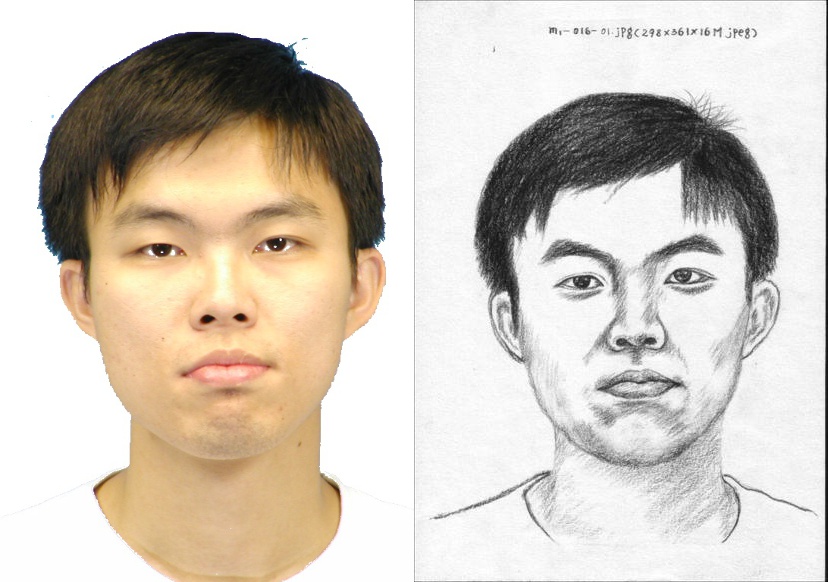 m1-016-01.jpg(298×361×16M jpeg)